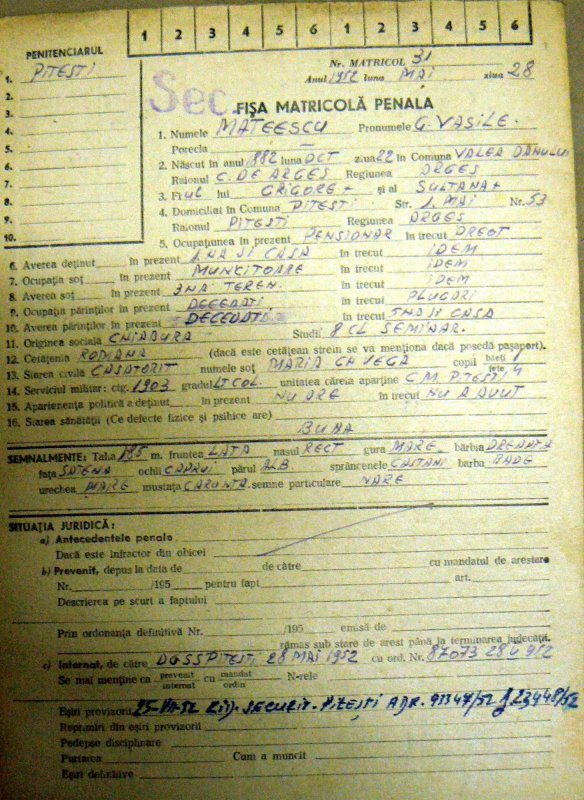 1 2 3 4 5 6 1 2 3 4 5 6
PENITENCIARUL
1. PITEȘTI
2.
3.
4.
5.
6.
7.
8.
9.
10.
Nr. MATRICOL 31
Anul 1952 luna MAI ziua 28
Sec.
FIȘA MATRICOLĂ PENALA
1. Numele MATEESCU Pronumele G. VASILE.
Porecla —
2. Născut în anul 1882 luna OCT ziua 22 în Comuna VALEA DANULUI
Raionul C. DE ARGEȘ Regiunea ARGEȘ
3. Fiul lui GRIGORE + și al SULTANA +
4. Domiciliat în Comuna PITEȘTI Str. 1. MAI Nr. 53
Raionul PITEȘTI Regiunea ARGEȘ
5. Ocupațiunea în prezent PENSIONAR în trecut
6. Averea deținut în prezent 1 HA ȘI CASA în trecut IDEM
7. Ocupația soț în prezent MUNCITOARE în trecut IDEM
8. Averea soț în prezent 3 HA TEREN. în trecut IDEM
9. Ocupația părinților în prezent DECEDAȚI în trecut PLUGARI
10. Averea părinților în prezent DECEDAȚI în trecut ȘI CASA
11. Originea socială CHIABURA Studii 8 CL SEMINAR.
12. Cetățenia ROMÂNA (dacă este cetățean strein se va menționa dacă posedă pașaport).
13. Starea civilă CASATORIT numele soț MARIA copii băeți 1
fete 4
14. Serviciul militar: ctg. 1903 gradul LT. COL. unitatea căreia aparține C. M. PITEȘTI
15. Apartenența politică a deținut în prezent NU ARE în trecut NU A AVUT
16. Starea sănătății (Ce defecte fizice și psihice are)
BUNA
SEMNALMENTE: Talia 185 m. fruntea LATA nasul RECT gura MARE bărbia DREAPTA
fața ochii CAPRUI părul ALB. sprâncenele CASTANI barba RADE
urechea MARE mustața CARUNTA semne particulare NARE
SITUAȚIA JURIDICĂ:
a) Antecedentele penale
Dacă este infractor din obicei
b) Prevenit, depus la data de de către cu mandatul de arestare
Nr. /195 pentru fapt art.
Descrierea pe scurt a faptului
Prin ordonanța definitivă Nr. /195 emisă de
rămas sub stare de arest până la terminarea judecății.
c) Internat, de către DGSS PITEȘTI 28 MAI 1952 cu ord. Nr. 87073 28 V 952
Se mai menține ca prevenit internat cu mandat ordin N-rele
Eșiri provizorii 25-VII-52 SECURIT. PITEȘTI ADR. 91347/52 23448/52
Reprimiri din eșiri provizorii
Pedepse disciplinare
Purtarea Cum a muncit
Eșiri definitive